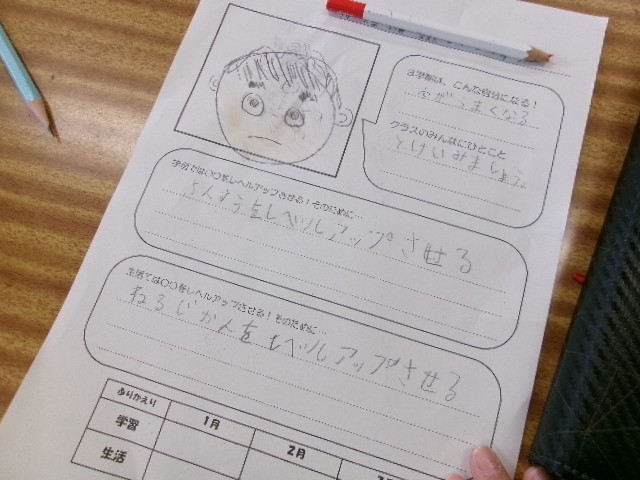 3学期は、こんな自分になる！
うまくなる
クラスのみんなにひとこと
とけいみましょう。
学習では〇〇をレベルアップさせる！そのために…
さんすうをレベルアップさせる
生活では〇〇をレベルアップさせる！そのために…
ねるじかんをレベルアップさせる
ふりかえり
1月
2月
学習
生活